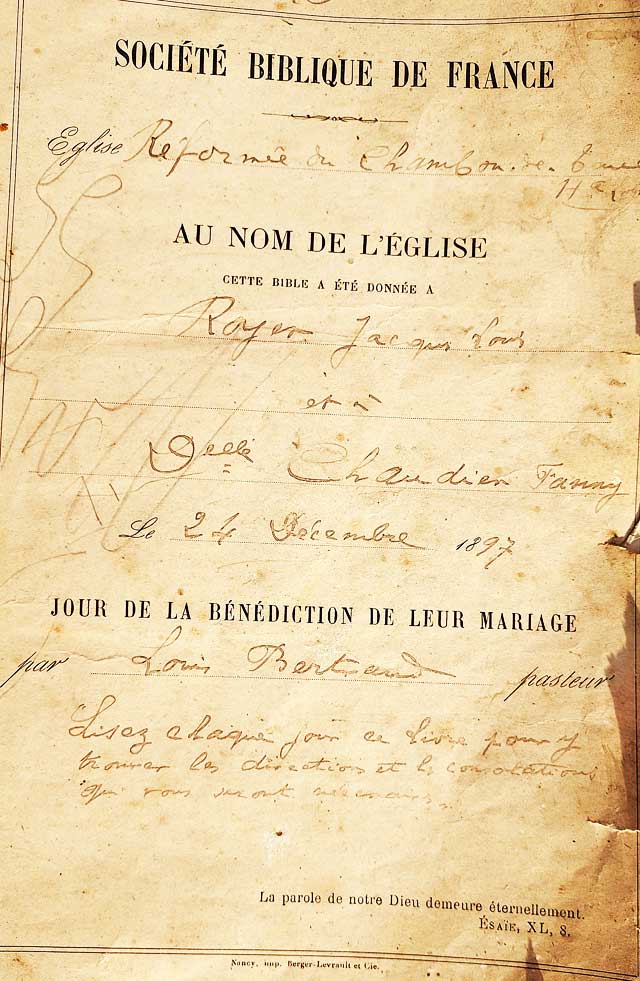 SOCIÉTÉ BIBLIQUE DE FRANCE
Eglise Réformée du Chambon-de-Tence
Hte Loire
AU NOM DE L'ÉGLISE
CETTE BIBLE A ÉTÉ DONNÉE A
Royer Jacques Louis
et à
Delle Chaudier Fanny
Le 24 Décembre 1897
JOUR DE LA BÉNÉDICTION DE LEUR MARIAGE
par Louis Bertrand pasteur
Lisez chaque jour ce livre pour y
trouver les direction et les consolations
qui vous seront nécessaires.
La parole de notre Dieu demeure éternellement.
ÉSAÏE, XL, 8.
Nancy, imp. Berger-Levrault et Cie.